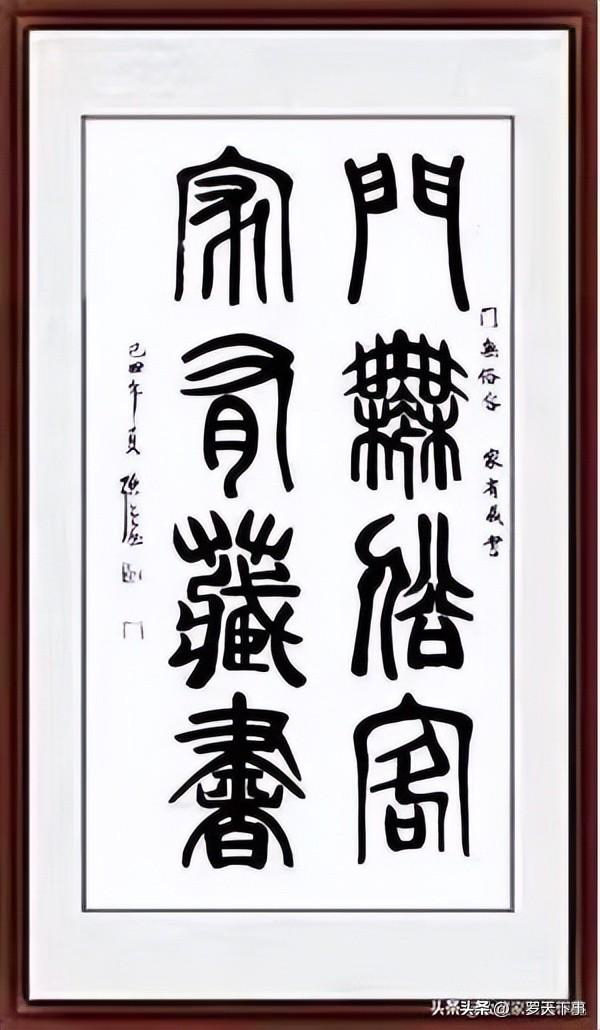 門無俗客
家有藏書
门無俗客 家有藏書
己丑年夏
头条 @罗天下事